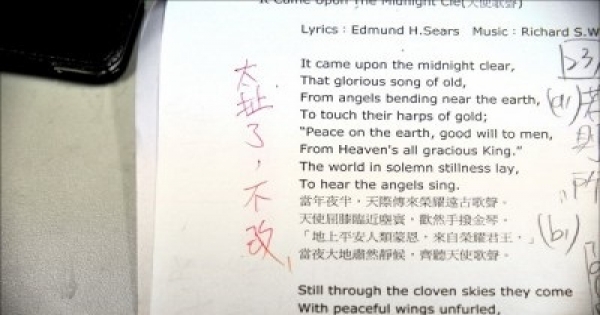 It Came Upon The Midnight Cle(天使歌聲)
Lyrics：Edmund H.Sears　Music：Richard S.W
It came upon the midnight clear,
That glorious song of old,
From angels bending near the earth,
To touch their harps of gold;
"Peace on the earth, good will to men,
From Heaven's all gracious King."
The world in solemn stillness lay,
To hear the angels sing.
當年夜半，天際傳來榮耀遠古歌聲。
天使屈膝臨近塵寰，歡然手撥金琴。
「地上平安人類蒙恩，來自榮耀君王，」
當夜大地肅然靜候，齊聽天使歌聲。
Still through the cloven skies they come
With peaceful wings unfurled,
太扯了，不改
b3
(a1)
(b1)